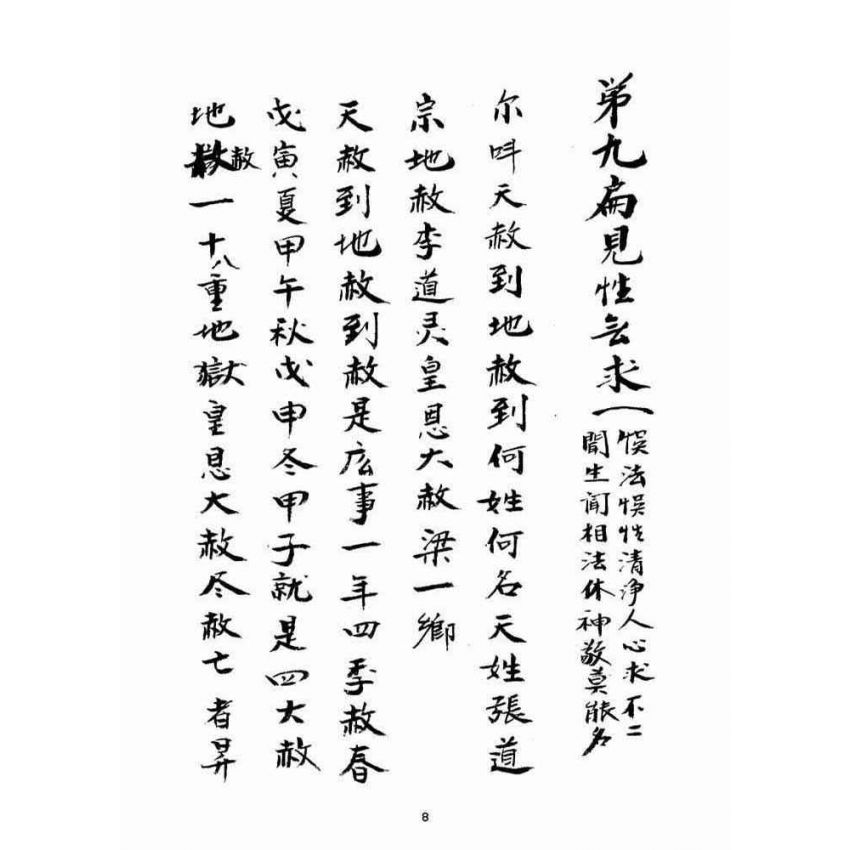 第九扁見性云求
悮法悮性清净人心求不二
聞生闻相法休神敬莫能名
尔呌天赦到地赦到何姓何名天姓張道
宗地赦李道灵皇恩大赦梁一鄉
天赦到地赦到赦是庅事一年四季赦春
戊寅夏甲午秋戊申冬甲子就是四大赦
地赦一十八重地獄皇恩大赦尽赦亡者昇
8